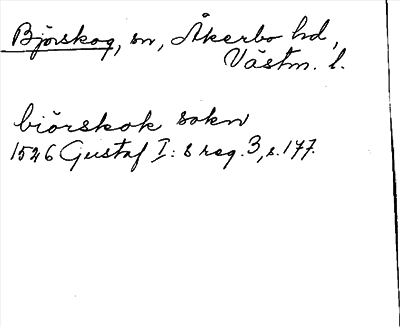 Björskog, sn, Åkerbo hd,
Västm. l.
biörskok sokn
1526 Gustaf I:s reg. 3, s. 177.